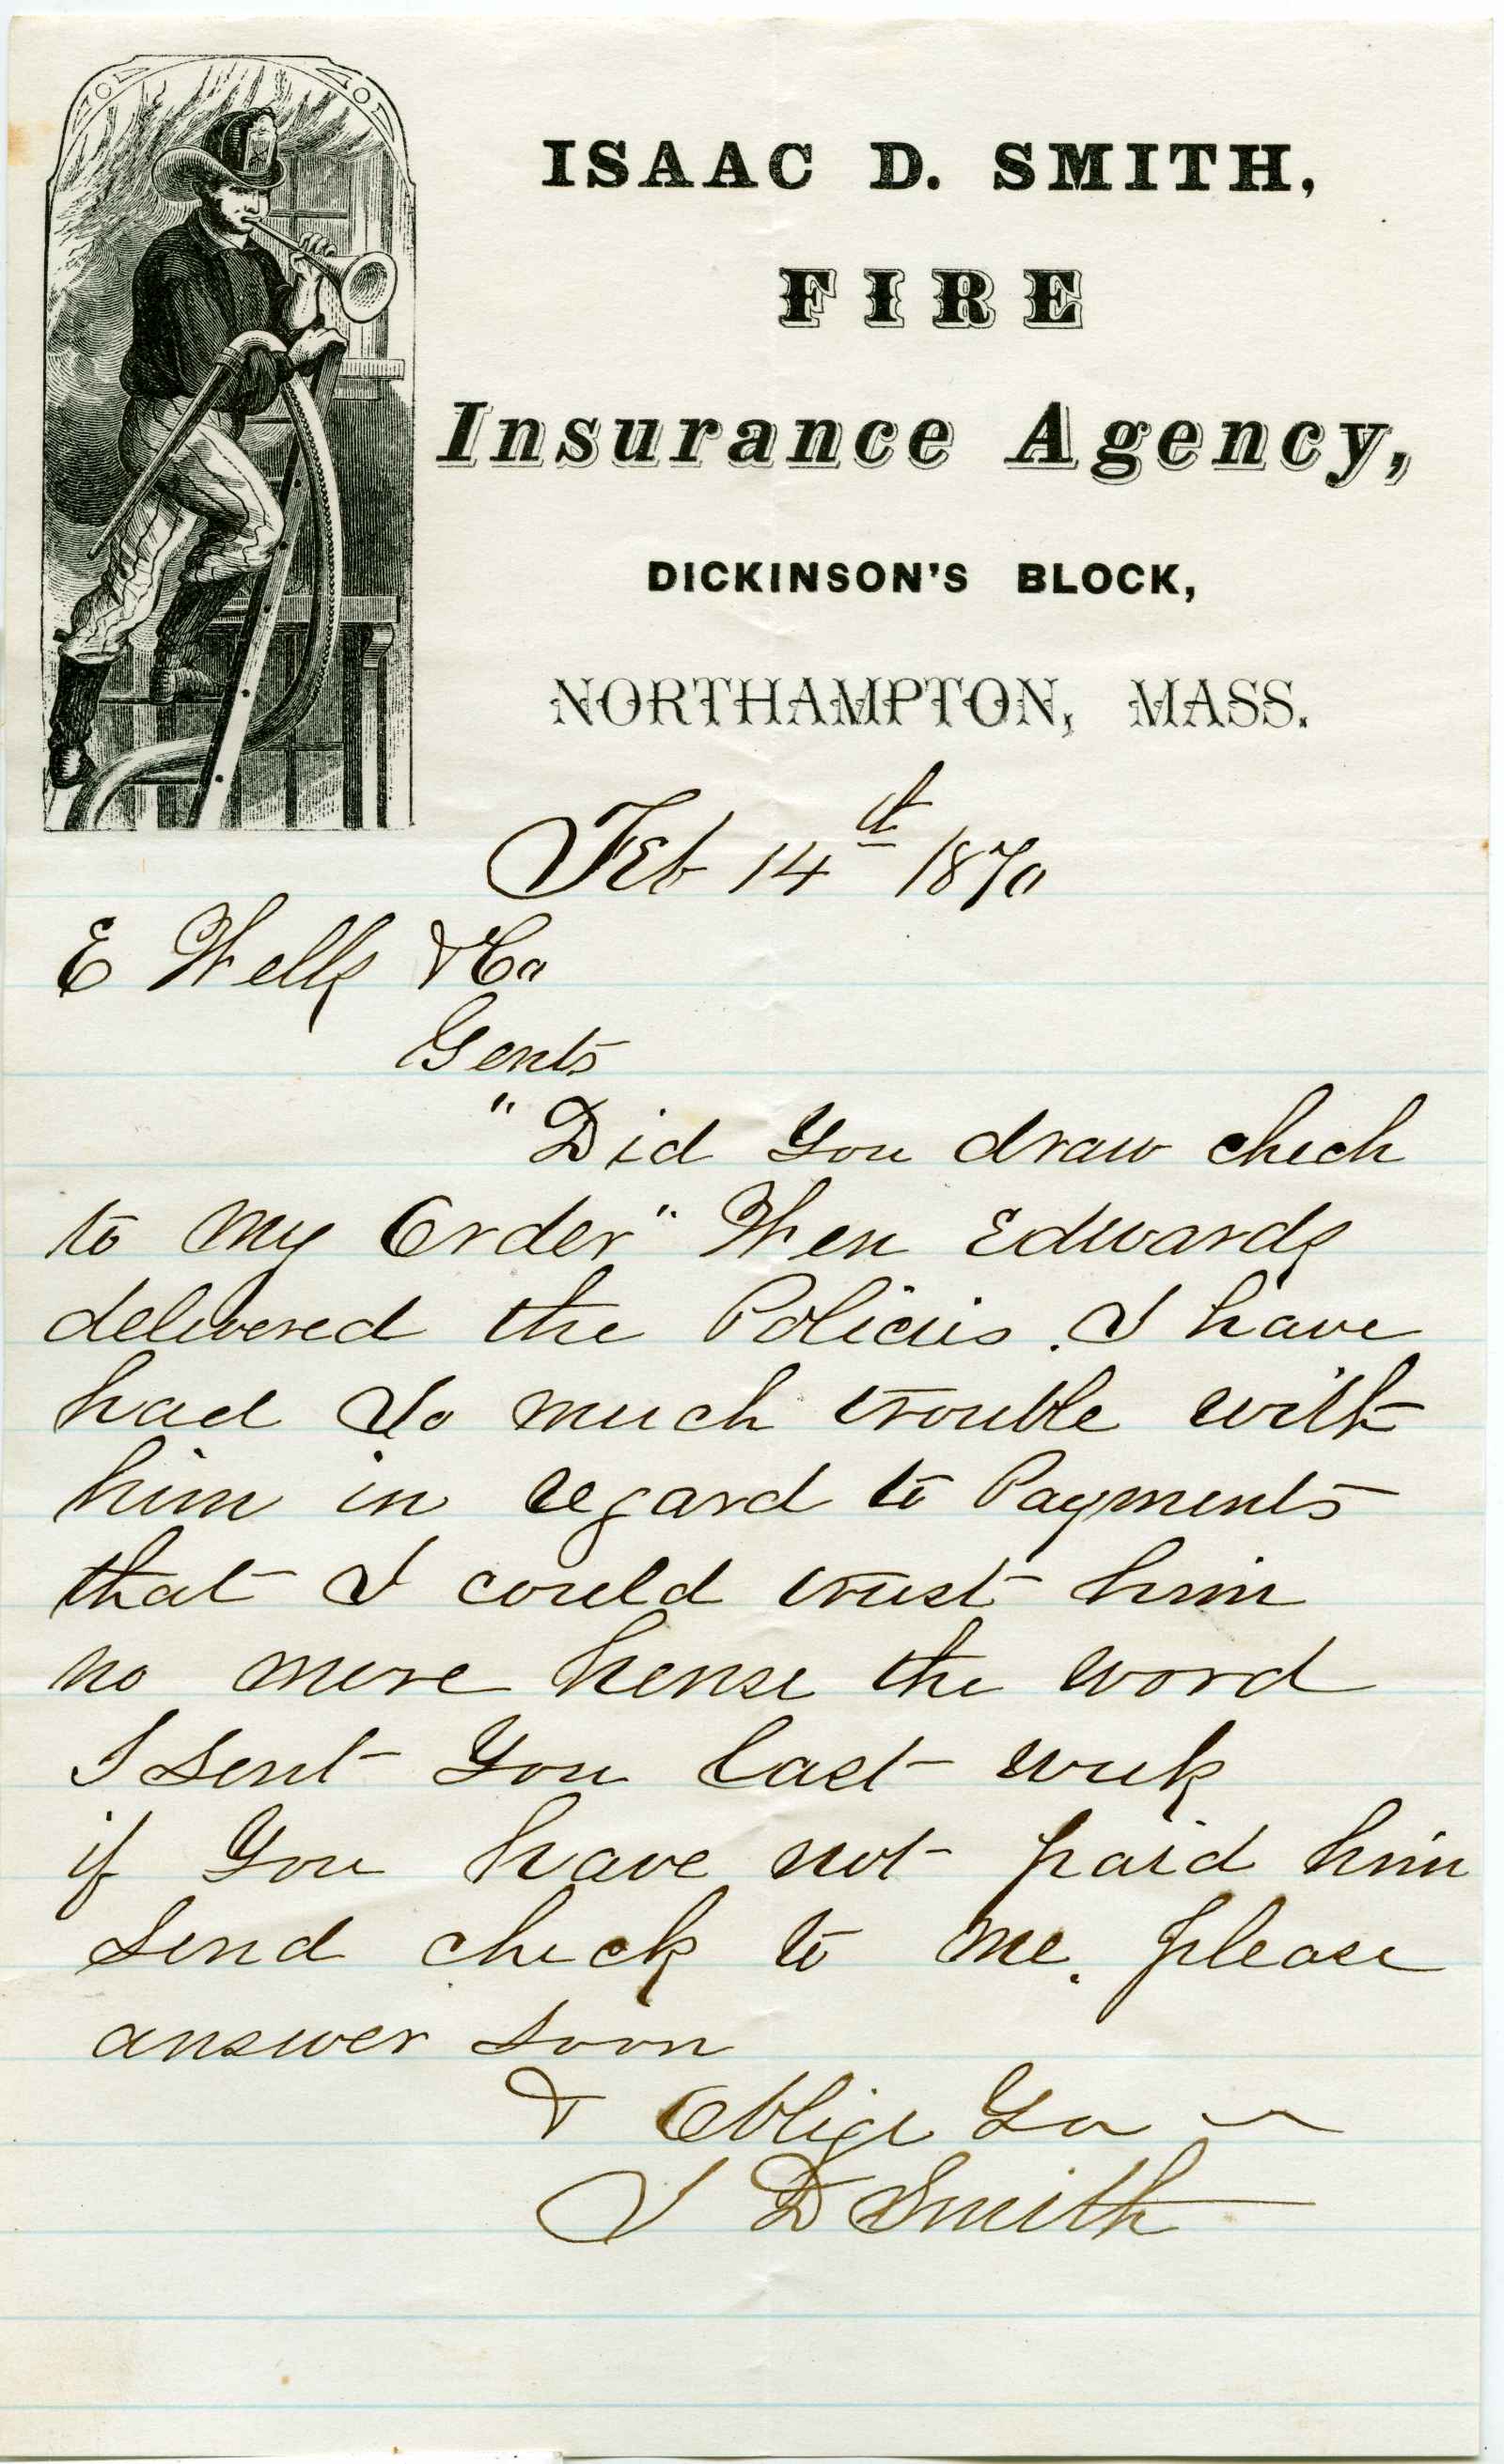 ISAAC D. SMITH,
FIRE
Insurance Agency,
DICKINSON'S BLOCK,
NORTHAMPTON, MASS.
Feb 14th 1870
E Wells & Co
Gents
"Did You draw check
to My Order" When Edwards
delivered the Policies. I have
had So much trouble with
him in regard to Payments
that I could trust him
no more hense the word
I sent You last week
if You have not paid him
Send check to me. please
answer soon
& Oblige Yo
I D Smith